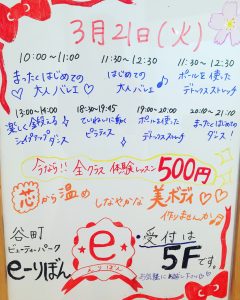 3月21日(火)
10:00〜11:00
まったくはじめての
大人バレエ
11:30〜12:30
はじめての
大人バレエ
11:30〜12:30
ポールを使った
デトックスストレッチ
13:00〜14:00
楽しく全身スッキリ
シェイプアップダンス
18:30〜19:45
ていねいに動く
ピラティス
19:00〜20:00
ポールを使った
デトックスストレッチ
20:10〜21:10
まったくはじめての
ダンス!
今なら!! 全クラス 体験レッスン 500円
芯から温め
しなやかな 美ボディ
作りませんか
谷町
ビューティーパーク
e-りぼん
e
えりぼん
受付は
5Fです。
お気軽に